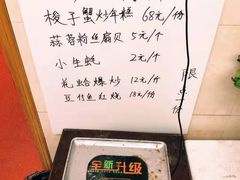 梭子蟹炒年糕 68元/份
蒜蓉粉丝扇贝 5元/个
小生蚝 2元/个
花蛤爆炒 12元/份
豆仔鱼红烧 18元/份
限5份
全新升级